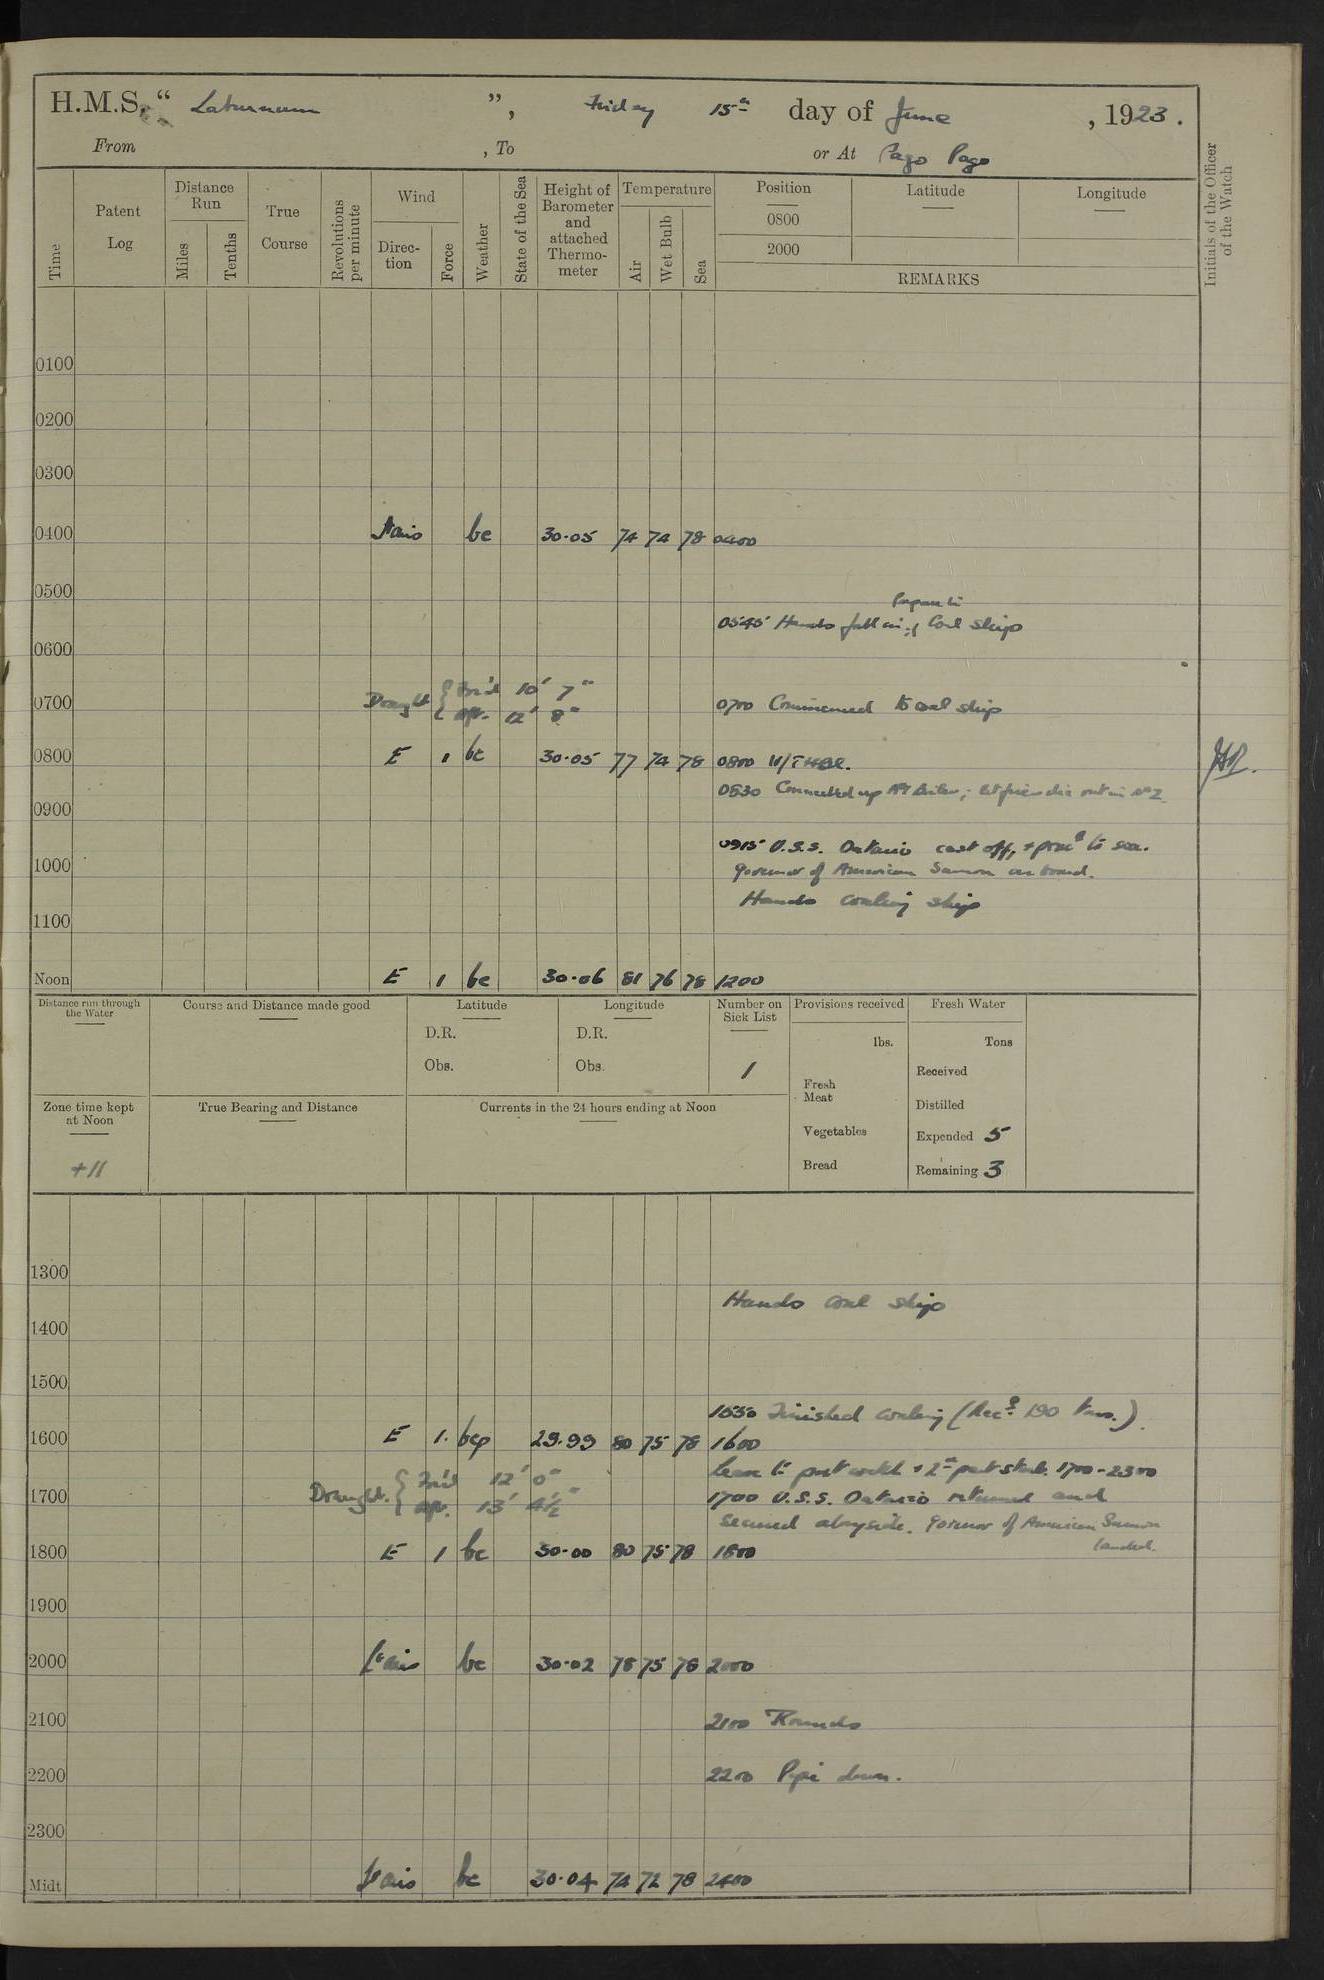 H.M.S. "Laburnum", Friday 15th day of June, 1923.
From , To or At Pago Pago
Time
Patent Log
Distance Run
Miles
Tenths
True Course
Revolutions per minute
Wind
Direction
Force
Weather
State of the Sea
Height of Barometer and attached Thermometer
Temperature
Air
Wet Bulb
Sea
Position
0800
2000
Latitude
Longitude
REMARKS
Initials of the Officer of the Watch
0100
0200
0300
0400 Airs bc 30.05 74 74 78 0400
0500
Prepare to
0545 Hands fall in; Coal ship
0600
Draught { For'd 10' 7"
Aft. 12' 8"
0700 0700 Commenced to coal ship
0800 E 1 bc 30.05 77 74 78 0800
0830 Connected up No 1 Boiler; let fires die out in No 2
0900
0915 U.S.S. Ontario cast off, + procd to sea.
1000 Governor of American Samoa on board.
Hands coaling ship
1100
Noon E 1 bc 30.06 81 76 78 1200
Distance run through the Water
Course and Distance made good
Latitude
D.R.
Obs.
Longitude
D.R.
Obs.
Number on Sick List
1
Provisions received
lbs.
Fresh Meat
Vegetables
Bread
Fresh Water
Tons
Received
Distilled
Expended 5
Remaining 3
Zone time kept at Noon
+11
True Bearing and Distance
Currents in the 24 hours ending at Noon
1300
Hands coal ship
1400
1500
1550 Finished coaling (Recd. 190 tons.).
1600 E 1. bcp 29.99 80 75 78 1600
Leave to port watch + 2nd part stbd. 1700-2300
Draught. { For'd 12' 0"
Aft. 13' 4½"
1700 1700 U.S.S. Ontario returned and
secured alongside. Governor of American Samoa
landed.
1800 E 1 bc 30.00 80 75 78 1800
1900
2000 Airs bc 30.02 78 75 78 2000
2100 2100 Rounds
2200 2200 Pipe down.
2300
Midt Airs bc 30.04 74 72 78 2400